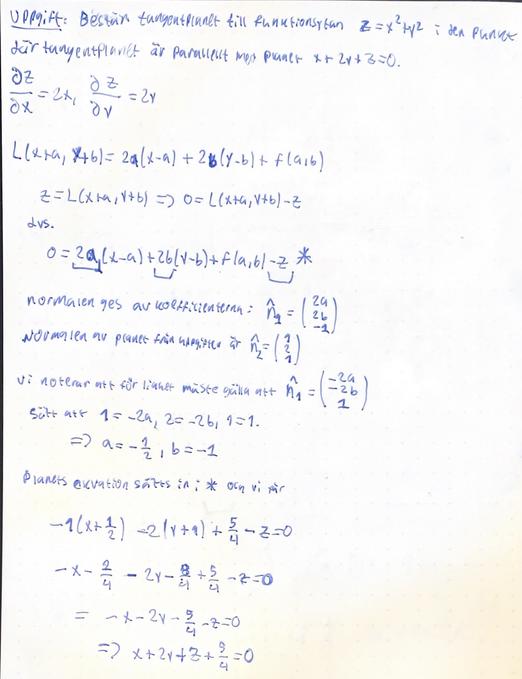 Uppgift: Bestäm tangentplanet till funktionsytan z = x² + y² i den punkt
där tangentplanet är parallellt med planet x + 2y + z = 0.
∂z/∂x = 2x, ∂z/∂y = 2y
L(x+a, y+b) = 2a(x-a) + 2b(y-b) + f(a,b)
z = L(x+a, y+b) => 0 = L(x+a, y+b) - z
dvs.
0 = 2a(x-a) + 2b(y-b) + f(a,b) - z *
normalen ges av koefficienterna: n̂₁ = (2a 2b -1)
Normalen av planet från uppgiften är n̂₂ = (1 2 1)
vi noterar att för måste gälla att n̂₁ = (-2a -2b 1)
sätt att 1 = -2a, 2 = -2b, 1 = 1.
=> a = -1/2, b = -1
Planets ekvation sätts in i * och vi får
-1(x + 1/2) - 2(y + 1) + 5/4 - z = 0
-x - 2/4 - 2y - 8/4 + 5/4 - z = 0
= -x - 2y - 5/4 - z = 0
=> x + 2y + z + 5/4 = 0